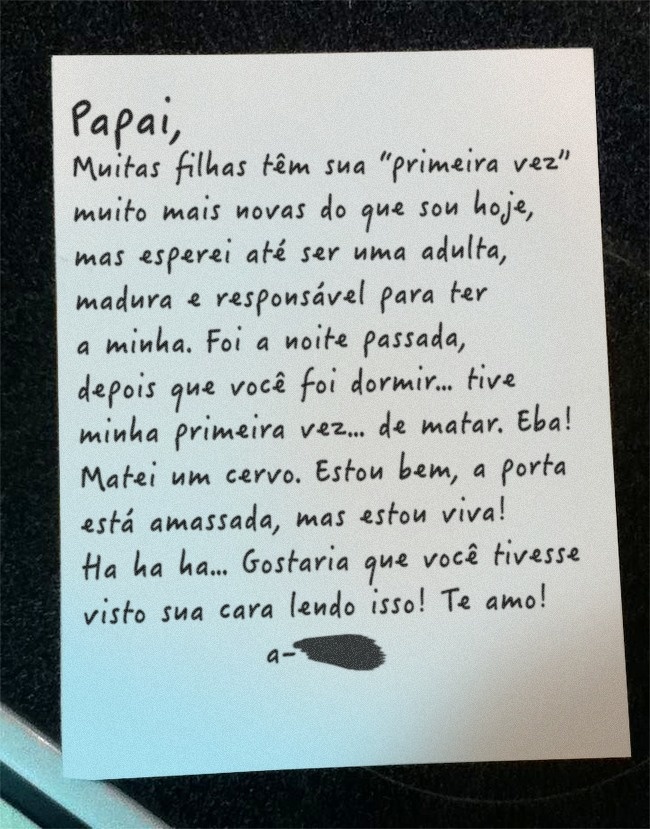 Papai,
Muitas filhas têm sua "primeira vez"
muito mais novas do que sou hoje,
mas esperei até ser uma adulta,
madura e responsável para ter
a minha. Foi a noite passada,
depois que você foi dormir... tive
minha primeira vez... de matar. Eba!
Matei um cervo. Estou bem, a porta
está amassada, mas estou viva!
Ha ha ha... Gostaria que você tivesse
visto sua cara lendo isso! Te amo!
a-